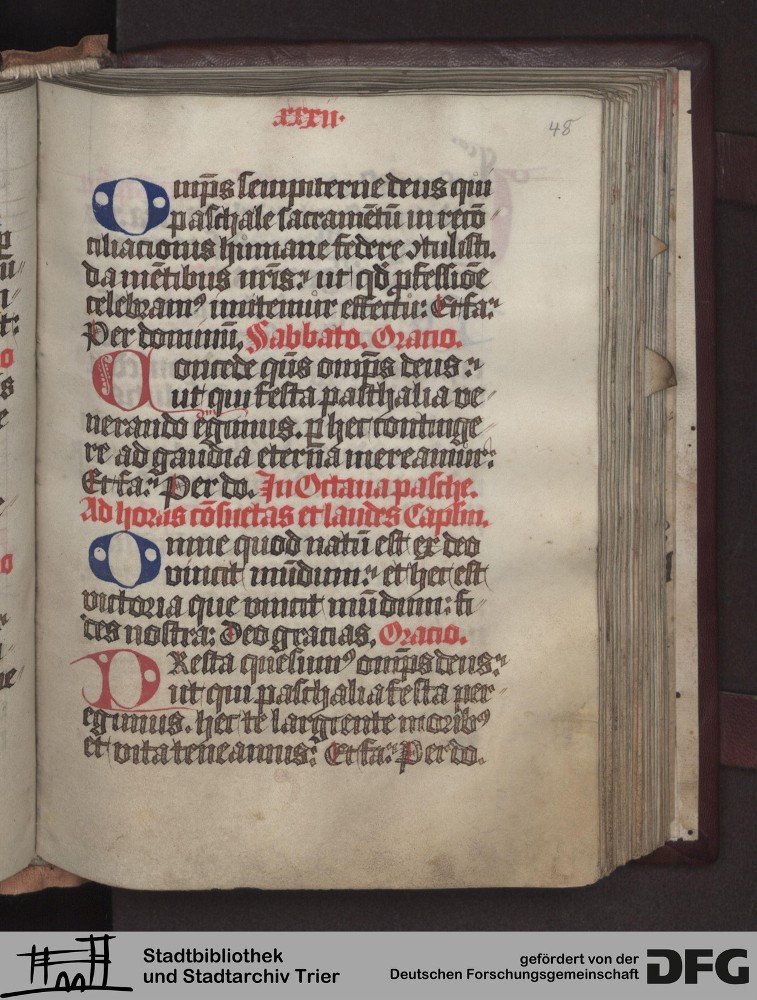 xxxii·
48
Omp̄s sempiterne deus qui
paschale sacramētū in recō
ciliacionis humane federe ꝯtulisti.
da mētibus nr̄is: ut qd̓ ꝓfessiōe
celebramꝰ imitemur effectu: Et fa:
Per dominū, Sabbato. Oratio.
Concede qūs omp̄s deus:
ut qui festa paschalia ve
nerando egimus. ꝑ hec continge
re ad gaudia eterna mereamur:
Et fa: Per do. In Octaua pasche.
Ad horas cōsuetas et laudes Caplm.
Omne quod natū est ex deo
vincit mūdum: et hec est
victoria que vincit mūdum: fi
des nostra: Deo gracias, Oratio.
PResta quesumꝰ omp̄s deus:
ut qui paschalia festa per
egimus. hec te largiente moribꝰ
et vita teneamus: Et fa: Per do.
Stadtbibliothek
und Stadtarchiv Trier
gefördert von der
Deutschen Forschungsgemeinschaft
DFG